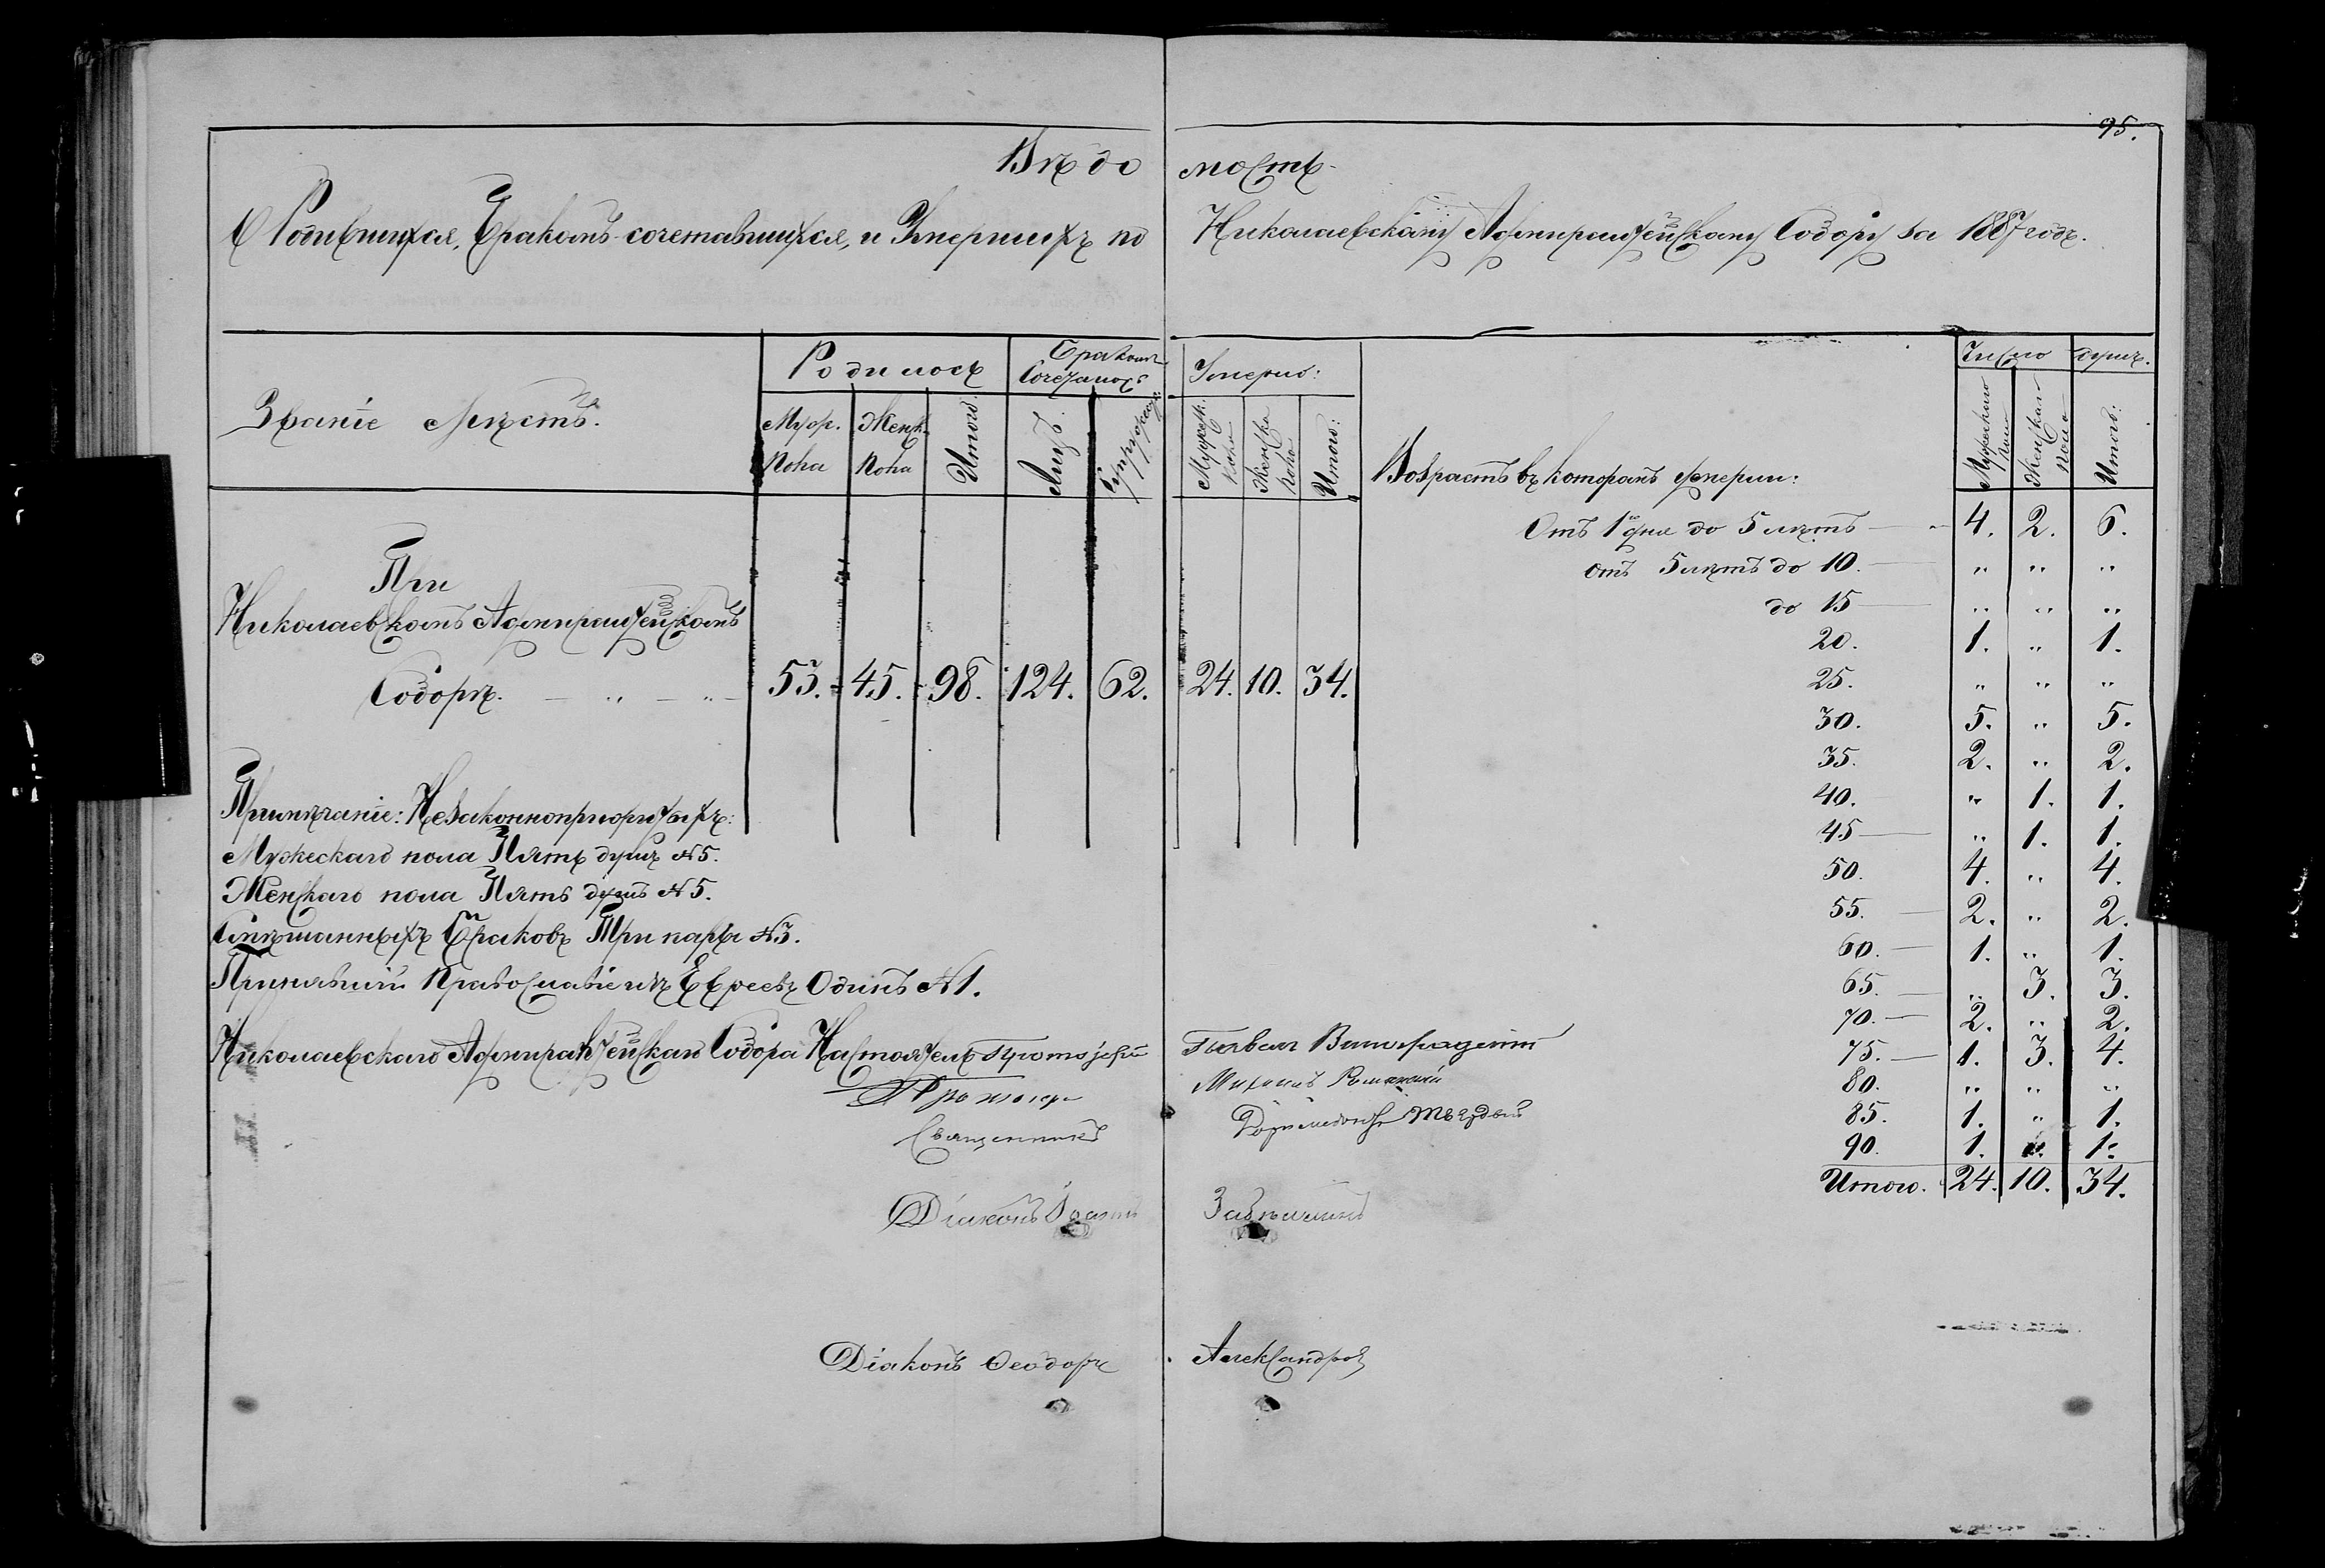 95.
Вѣдомость
О Родившихся, Бракомъ-сочетавшихся, и Умершихъ по Николаевскому Адмиралтейскому Собору за 1887 годъ.
Званіе мѣстъ.
Родилось
Муж. пола
Женск. пола
Итого.
Бракомъ Сочеталось
Лицъ.
Супружествъ
Умерло:
Мужеск. пола
Женска пола
Итого:
Возрастъ въ которомъ умерли:
Число душъ.
Мужескаго пола
Женскаго пола
Итого:
При
Николаевскомъ Адмиралтейскомъ
Соборѣ. — „ — „ — 53. 45. 98. 124. 62. 24. 10. 34.
Отъ 1го дня до 5 лѣтъ — 4. 2. 6.
отъ 5 лѣтъ до 10. — „ „ „
до 15 — „ „ „
20. 1. „ 1.
25. „ „ „
30. 5. „ 5.
35. 2. „ 2.
40. „ 1. 1.
45 — „ 1. 1.
50. 4. „ 4.
55. — 2. „ 2.
60. — 1. „ 1.
65. — „ 3. 3.
70. — 2. „ 2.
75. — 1. 3. 4.
80. „ „ „
85. 1. „ 1.
90. 1. „ 1.
Итого. 24. 10. 34.
Примѣчаніе: Незаконноприжитыхъ:
Мужескаго пола Пять душъ №5.
Женскаго пола Пять душъ №5.
Смѣшанныхъ Браковъ Три пары №3.
Принявшій Православіе изъ Евреевъ Одинъ №1.
Николаевскаго Адмиралтейскаго Собора Настоятель Протоіерей
Протоіер.
Михаилъ
Священникъ
Діаконъ Іоаннъ
Діаконъ Ѳеодоръ Александровъ